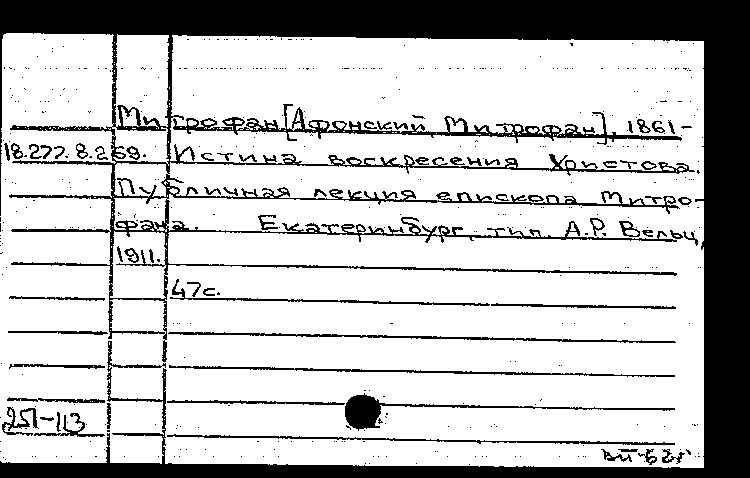 Митрофан [Афонский, Митрофан], 1861-
18.277.8.269. Истина воскресения Христова.
Публичная лекция епископа Митро-
фана. Екатеринбург, тип. А.Р. Вельц,
1911.
47с.
251-113